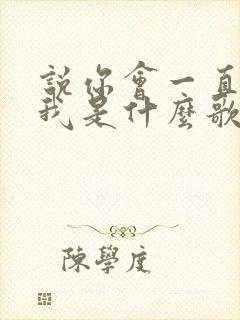 說你會一直
我是什麼歌
陳學度